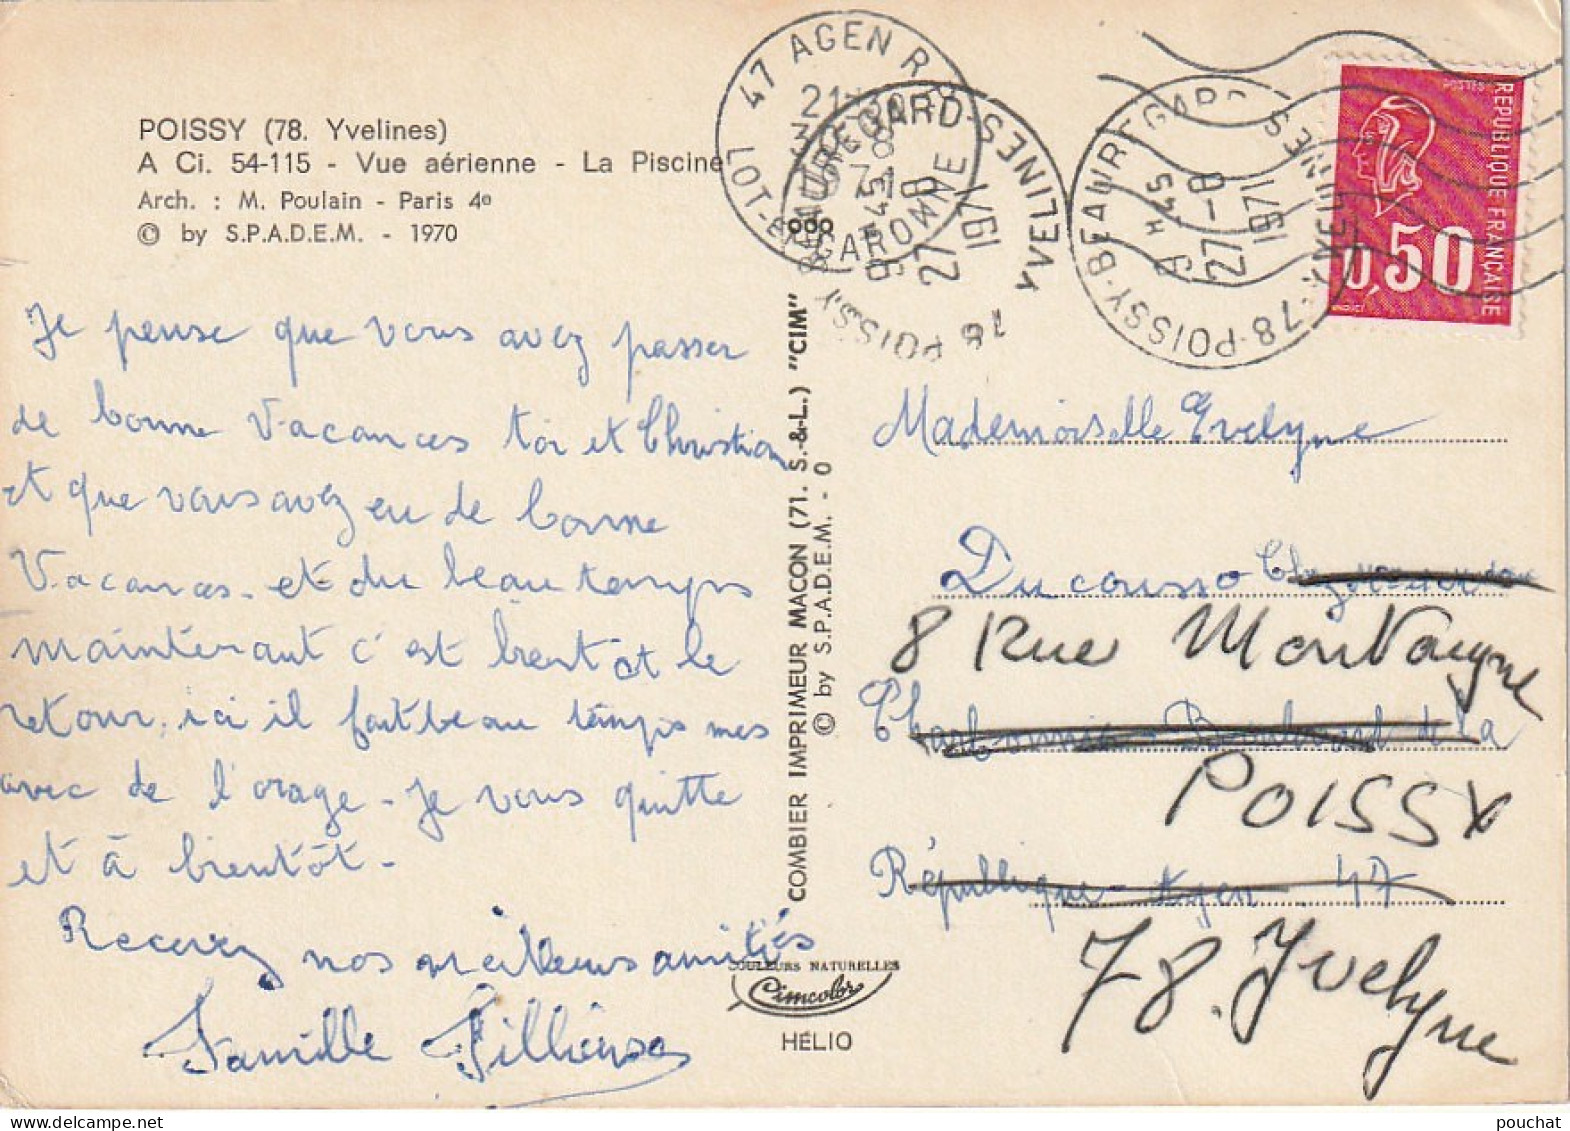 POISSY (78. Yvelines)
A Ci. 54-115 - Vue aérienne - La Piscine
Arch. : M. Poulain - Paris 4e
© by S.P.A.D.E.M. - 1970
Je pense que vous avez passer
de bonne Vacances toi et Christian
et que vous avez eu de bonne
Vacances. et du beau temps
maintenant c'est bientot le
retour, ici il fait beau temps mes
avec de l'orage - Je vous quitte
et à bientôt -
Recevez nos meilleurs amitiés
Famille
COMBIER IMPRIMEUR MACON (71. S.-&-L.) "CIM"
© by S.P.A.D.E.M. - 0
COULEURS NATURELLES
Cimcolor
HÉLIO
47 AGEN R.P.
LOT-ET-GARONNE
21H30
78 POISSY BEAUREGARD - YVELINES
27-8
1971
78-POISSY-BEAUREGARD YVELINES
H 45
27-8
1971
POSTES
REPUBLIQUE FRANÇAISE
0,50
Mademoiselle Evelyne
Ducousso
8 Rue Montaigne
Boulevard de La
POISSY
République - Agen 47
78. Yvelyne
pouchat